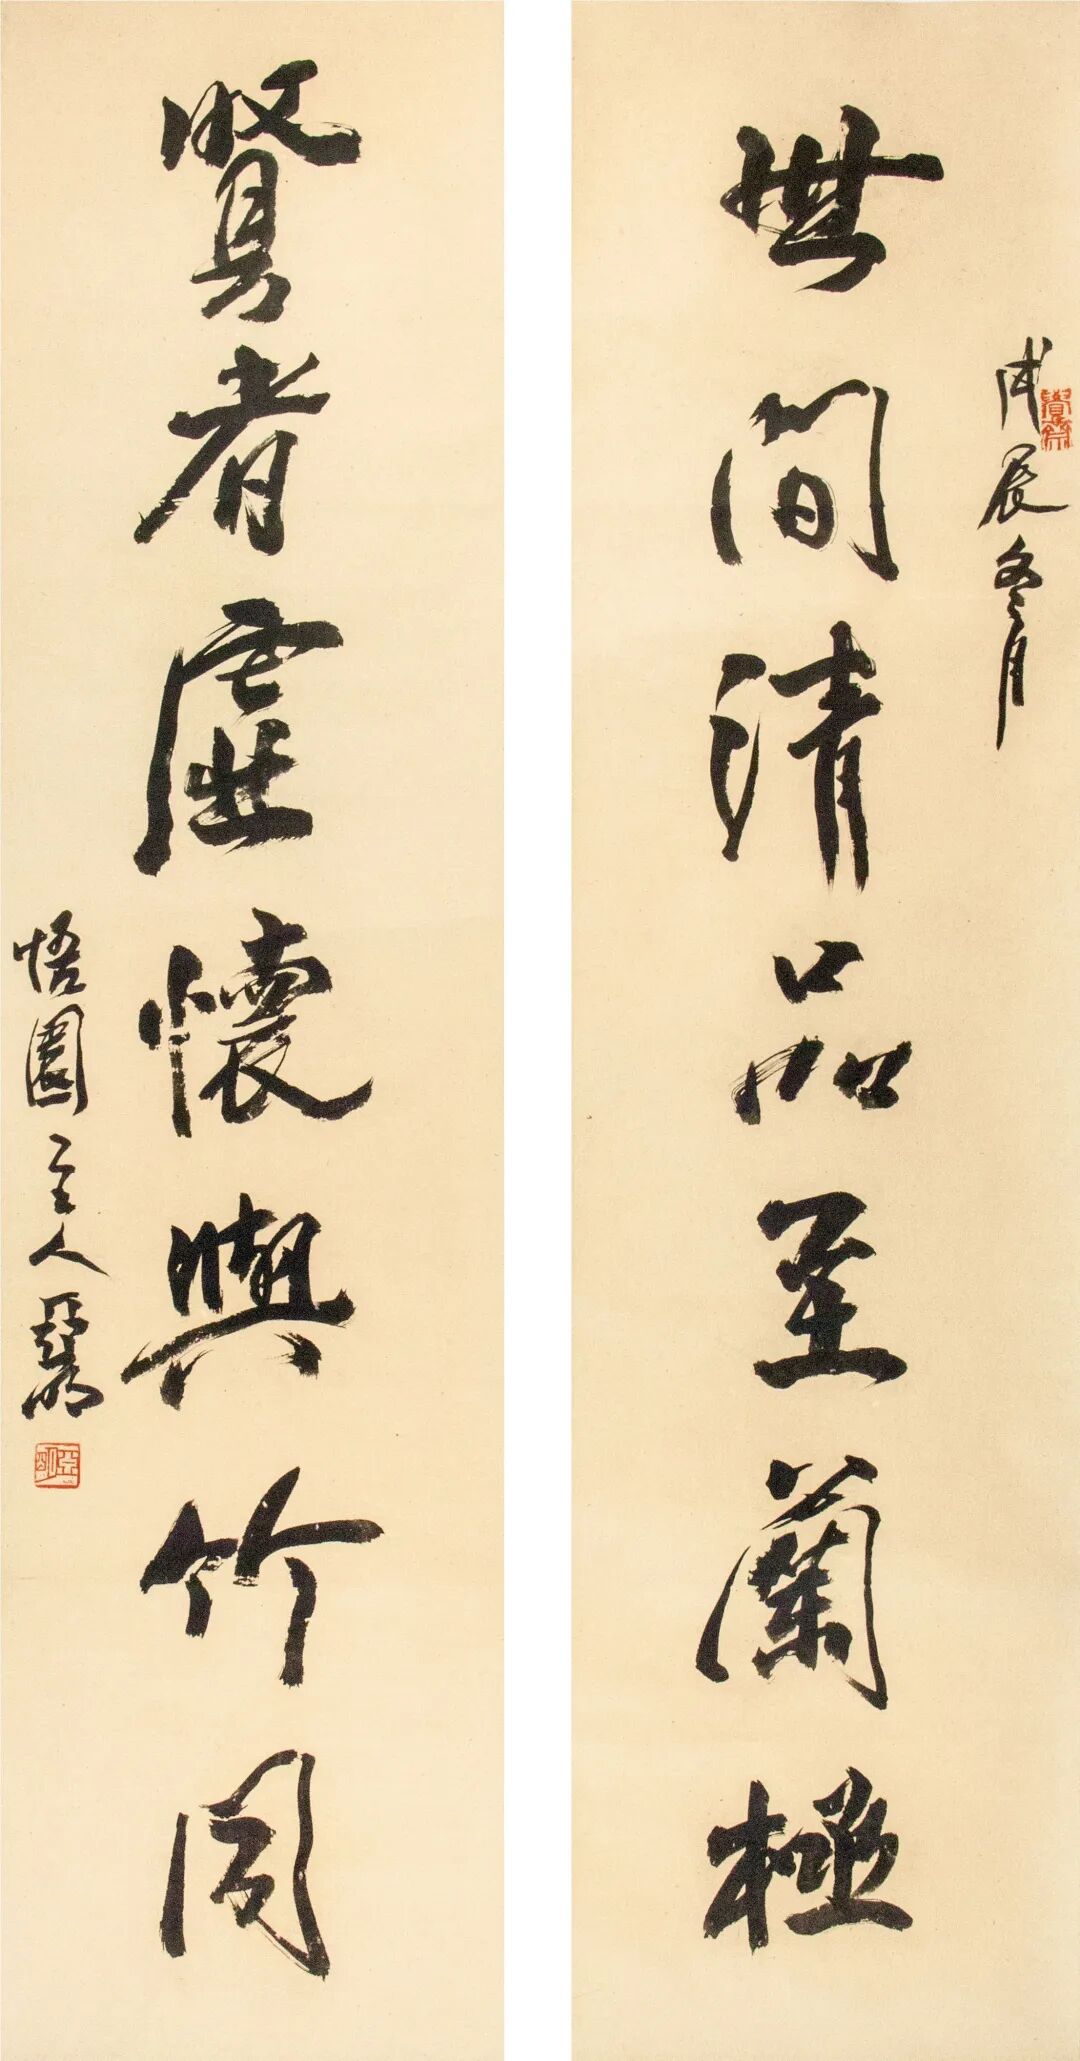 世間清品至蘭極
戊辰冬月
賢者虛懷與竹同
悟園主人亞明
亞明